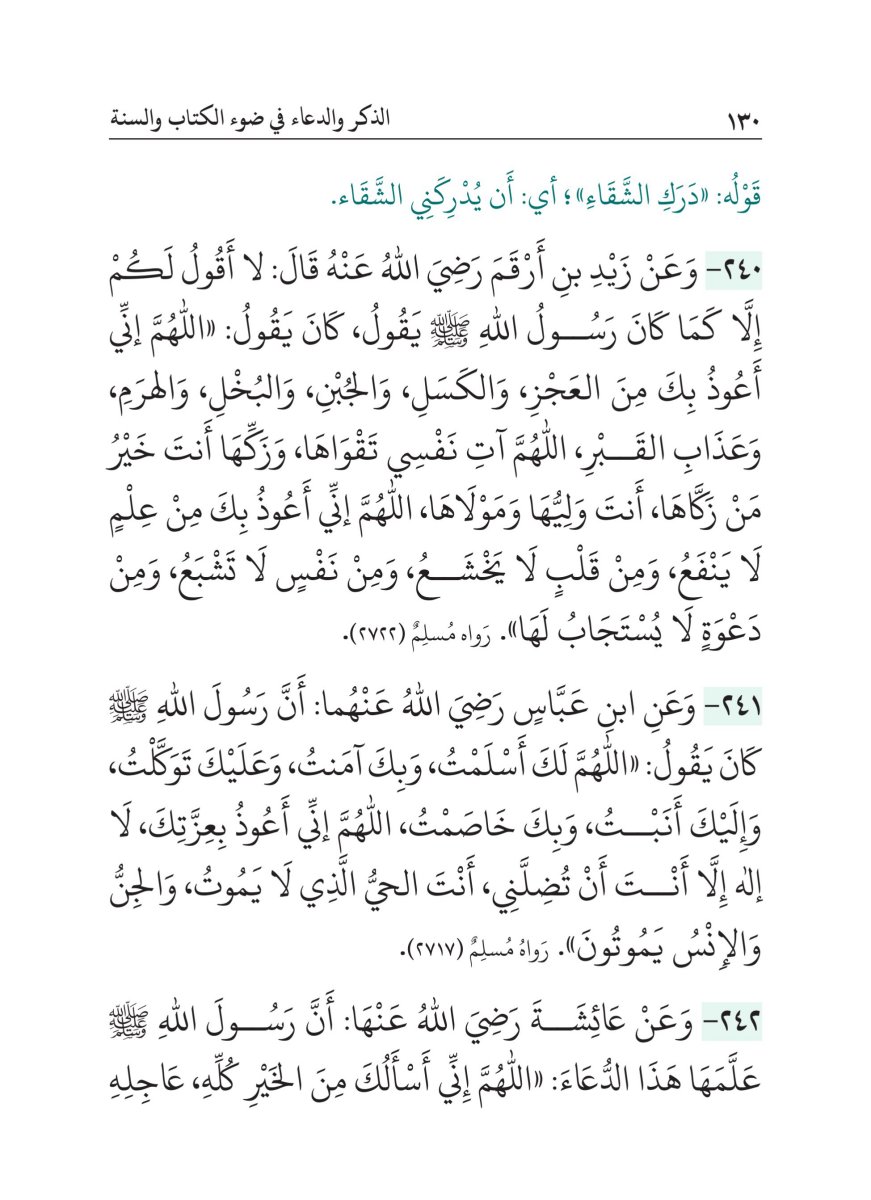 ١٣٠ الذكر والدعاء في ضوء الكتاب والسنة
قَوْلُه: «دَرَكِ الشَّقَاءِ»؛ أي: أَن يُدْرِكَنِي الشَّقَاء.
٢٤٠- وَعَنْ زَيْدِ بنِ أَرْقَمَ رَضِيَ اللهُ عَنْهُ قَالَ: لا أَقُولُ لَكُمْ
إِلَّا كَمَا كَانَ رَسُولُ اللهِ ﷺ يَقُولُ، كَانَ يَقُولُ: «اللَّهُمَّ إنِّي
أَعُوذُ بِكَ مِنَ العَجْزِ، وَالكَسَلِ، وَالجُبْنِ، وَالبُخْلِ، وَالهرَمِ،
وَعَذَابِ القَبْرِ، اللَّهُمَّ آتِ نَفْسِي تَقْوَاهَا، وَزَكِّهَا أَنتَ خَيْرُ
مَنْ زَكَّاهَا، أَنتَ وَلِيُّهَا وَمَوْلَاهَا، اللَّهُمَّ إنِّي أَعُوذُ بِكَ مِنْ عِلْمٍ
لَا يَنْفَعُ، وَمِنْ قَلْبٍ لَا يَخْشَعُ، وَمِنْ نَفْسٍ لَا تَشْبَعُ، وَمِنْ
دَعْوَةٍ لَا يُسْتَجَابُ لَهَا». رَواه مُسلِمٌ (٢٧٢٢).
٢٤١- وَعَنِ ابنِ عَبَّاسٍ رَضِيَ اللهُ عَنْهُما: أَنَّ رَسُولَ اللهِ ﷺ
كَانَ يَقُولُ: «اللَّهُمَّ لَكَ أَسْلَمْتُ، وَبِكَ آمَنتُ، وَعَلَيْكَ تَوَكَّلْتُ،
وَإِلَيْكَ أَنَبْتُ، وَبِكَ خَاصَمْتُ، اللَّهُمَّ إنِّي أَعُوذُ بِعِزَّتِكَ، لَا
إلٰه إِلَّا أَنْتَ أَنْ تُضِلَّنِي، أَنْتَ الحيُّ الَّذِي لَا يَمُوتُ، وَالجِنُّ
وَالإنْسُ يَمُوتُونَ». رَواهُ مُسلِمٌ (٢٧١٧).
٢٤٢- وَعَنْ عَائِشَةَ رَضِيَ اللهُ عَنْهَا: أَنَّ رَسُولَ اللهِ ﷺ
عَلَّمَهَا هَذَا الدُّعَاءَ: «اللَّهُمَّ إِنِّي أَسْأَلُكَ مِنَ الخَيْرِ كُلِّهِ، عَاجِلِهِ